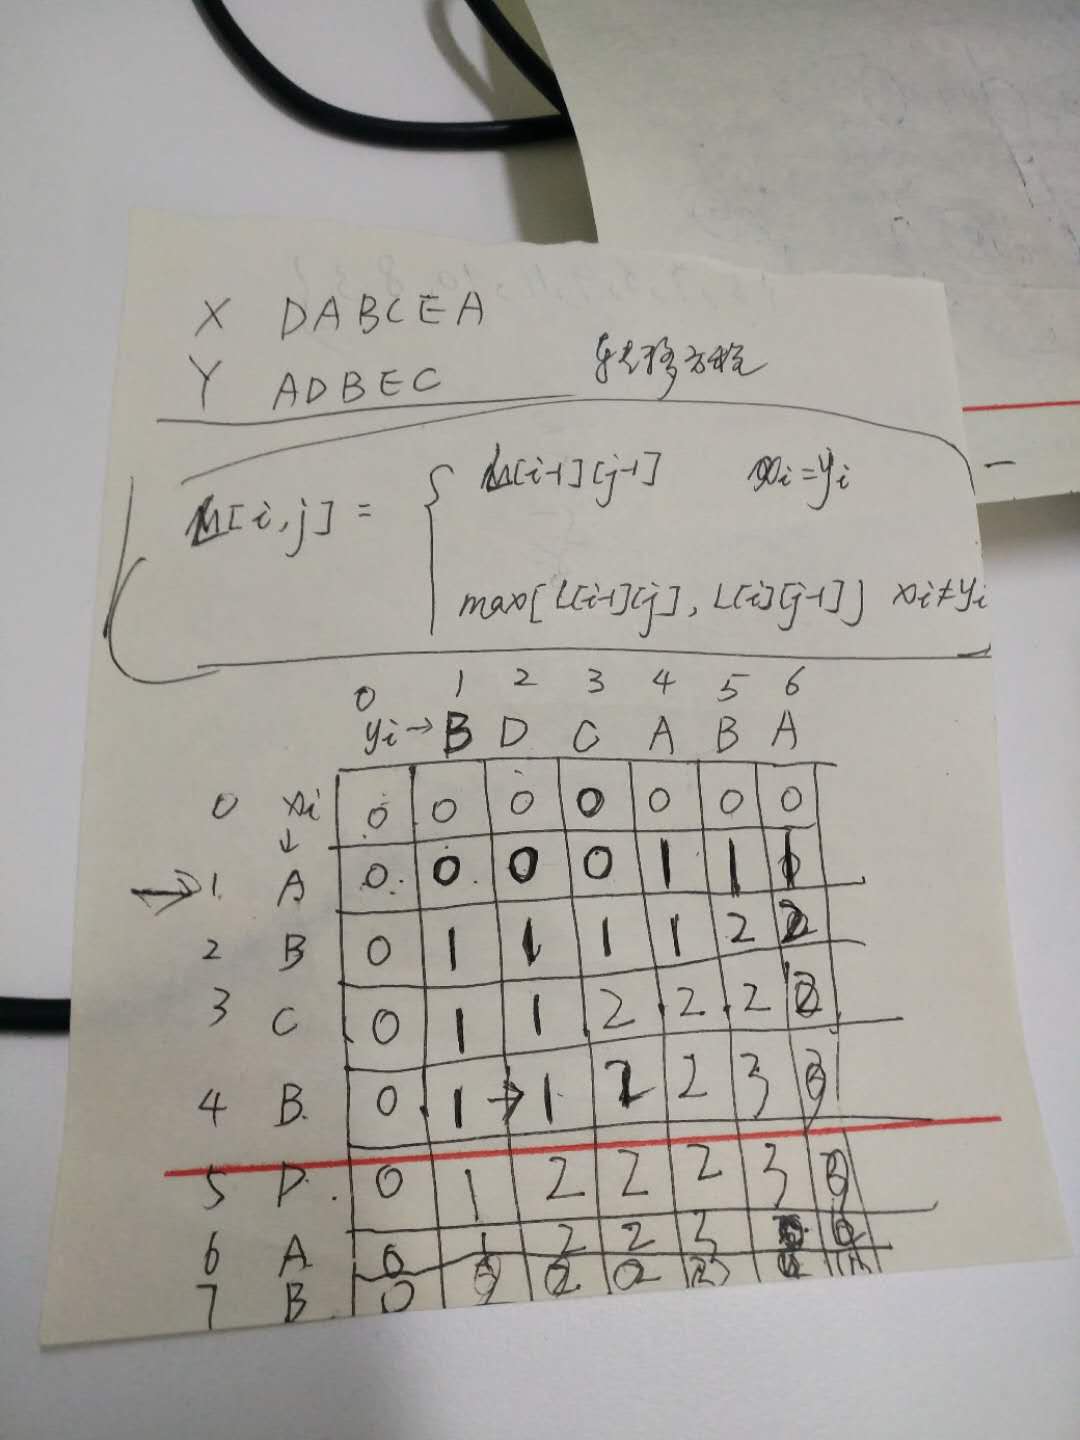 X DABCEA
Y ADBEC
转移方程
L[i,j] =
L[i-1][j-1] xi=yi
max[L[i-1][j], L[i][j-1]] xi≠yi
0 1 2 3 4 5 6
yi→ B D C A B A
0 xi↓ 0 0 0 0 0 0 0
→ 1. A 0 0 0 0 1 1 1
2 B 0 1 1 1 1 2 2
3 C 0 1 1 2 2 2 2
4 B. 0 1→1 2 2 3 3
5 D. 0 1 2 2 2 3 3
6 A 0 1 2 2 3
7 B 0